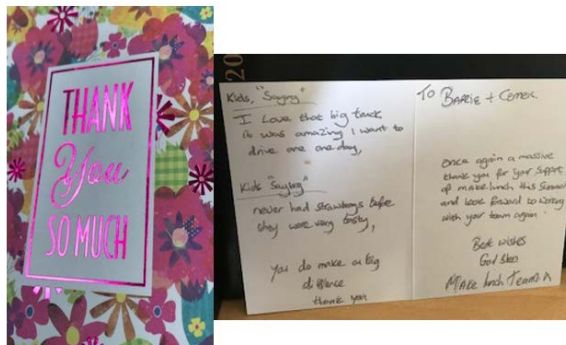 THANK
You
SO MUCH
20
Kids, "Saying"
I Love that big truck
it was amazing I want to
drive one one day,
Kids "Saying"
never had strawbreys before
they were very tasty,
you do make a big
diffence
thank you
To Barrie +
once again a massive
thank you for your support
of makelunch this Summer
and look forward to working
with your team again
Best wishes
God bless
Make lunch Team